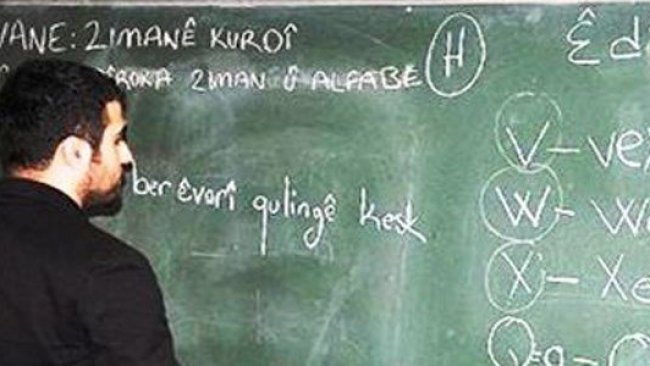 VANE: ZIMANÊ KURDÎ
ÎROKA ZIMAN Û ALFABE
H
ber êvarî qulingê kesk
Ê d
V - vex
W - We
X - Xe
Q = q -